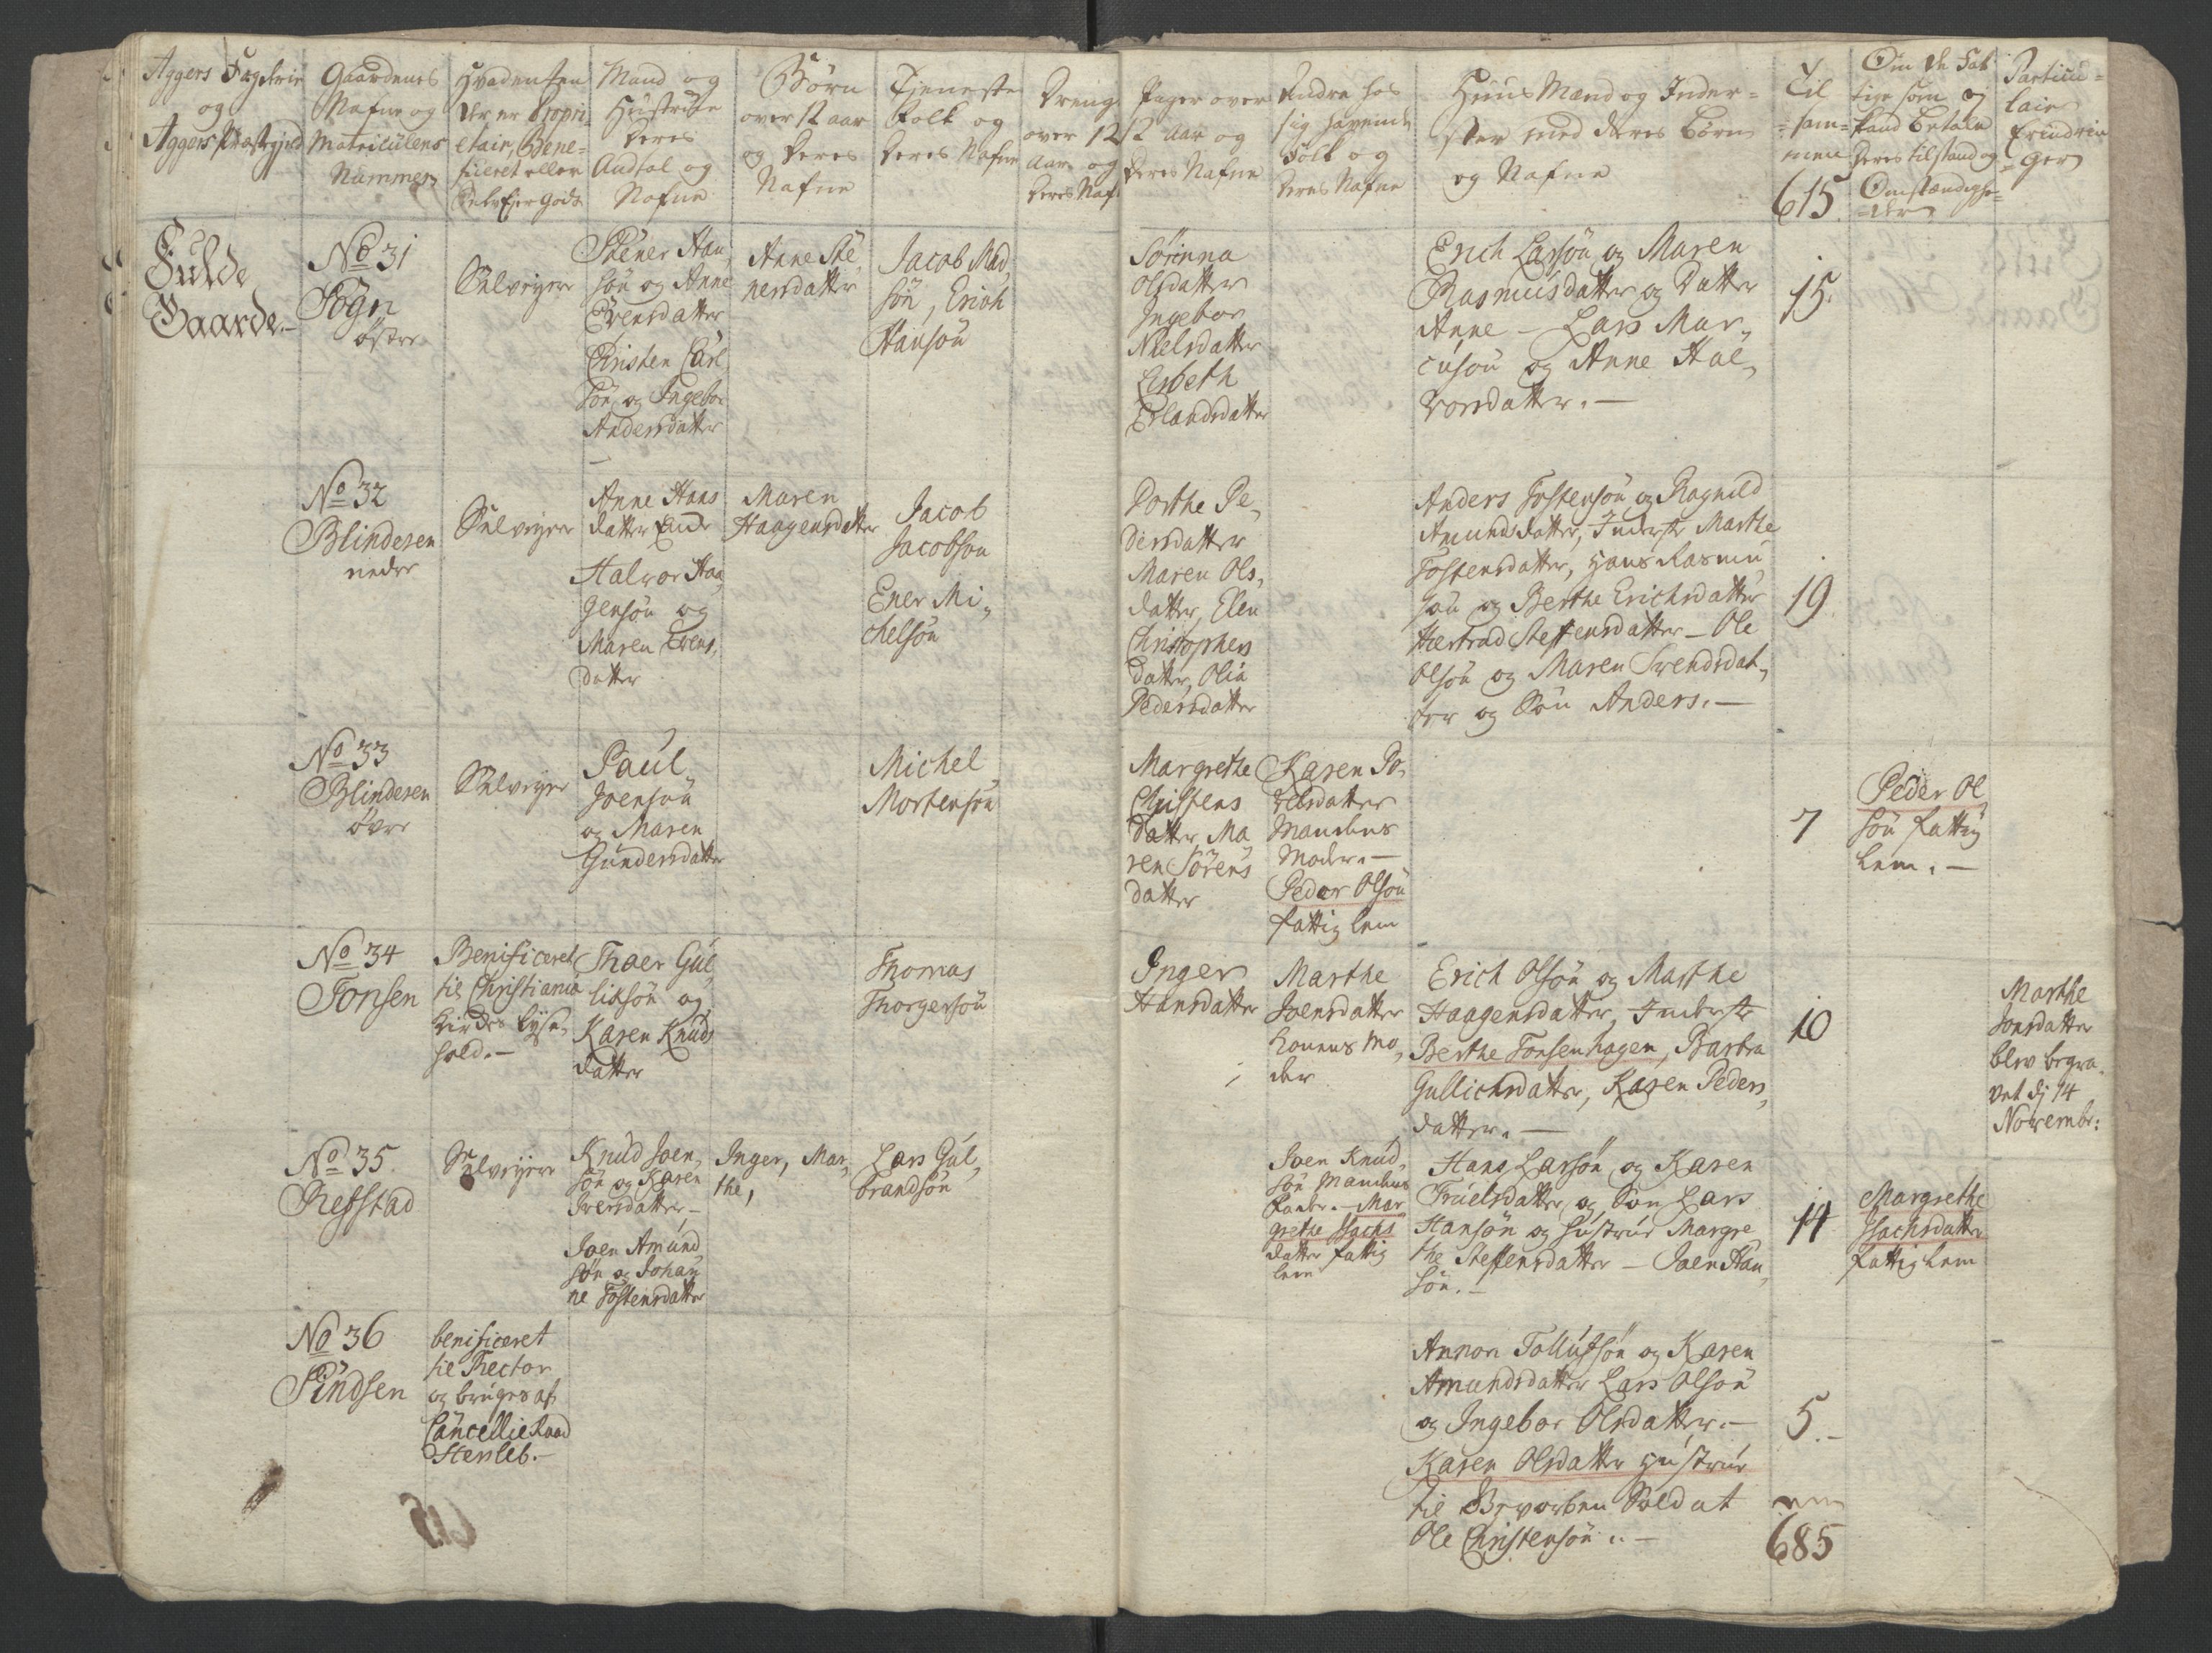 Aggers Fogderie
og
Aggers Præstegield
Gaardenes
Nafne og
Matriculens
Nummer
Hvadenten
der er Propri-
etair, Bene-
ficeret eller
Selv Ejer Gods
Mand og
Hustrue
deres
Andtal og
Nafne
Børn
over 12 aar
og deres
Nafne
Tieneste
Folk og
deres Nafne
Dreng
over 12
Aar og
deres Naf.
Piger over
12 aar og
deres Nafne
Andre hos
sig havende
Folk og
deres Nafne
Huus Mænd og Inder-
ster med deres Børn
og Nafne
Til
sam-
men
615
Om de Fat
tige som ej
kand betale
deres tilstand og
Omstændighe-
der
Particu-
laire
Erindrin
ger
Fulde
Gaarde.-
No 31
Sogn
østre
Selvejere
Stener Han,
søn og Anne
Evensdatter
Christen Carl
søn og Ingebor
Andersdatter
Anne Ste,
nersdatter
Jacob Mad,
søn, Erich
Hansøn
Sørinna
Olsdatter
Ingebor
Nielsdatter
Lisbeth
Erlandsdatter
Erich Larsøn og Maren
Rasmusdatter og Datter
Anne - Lars Mar,
cusøn og Anne Hal,
vorsdatter. -
15.
No 32
Blindesen
nedre
Selvejere
Anne Hans
datter Enke
Halvor Haa,
gensøn og
Maren Evens,
datter
Maren
Haagensdatter
Jacob
Jacobsøn
Ener Mi,
chelsøn
Dorthe Pe,
dersdatter
Maren Ols,
datter, Elen
Christophers
datter, Olia
Pedersdatter
Anders Tostensøn og Ragnild
Amundsdatter, Inderste Marthe
Tostensdatter, Hans Rasmu
søn og Berthe Erichsdatter
Hertrad Steffensdatter - Ole
Olsøn og Maren Svendsdat,
ter og Søn Anders. -
19
No 33
Blindesen
øvre
Selvejere
Paul
Joensøn
og Maren
Gundersdatter
Michel
Mortensøn
Margrethe
Christens
datter Ma
ren Sørens
datter
Karen Po,
velsdatter
Mandens
Moder. -
Peder Olsøn
fattig lem
7
Peder Ol
søn fattig
lem. -
No 34
Tonsen
Benificeret
til Christiania
Kirkes Lyse,
hold. -
Thoer Gul,
liksøn og
Karen Knuds
datter
Thomas
Thorgersøn
Inger
Hansdatter
Marthe
Joensdatter
Konens Mo,
der
Erich Olsøn og Marthe
Haagensdatter, Inderste
Berthe Tonsenhagen, Barbra
Gullichsdatter, Karen Peders,
datter. -
10
Marthe
Jonsdatter
blev begra,
vet dj 14
Novembr:
No 35
Refstad
Selvejere
Knud Joen,
søn og Karen
Iversdatter -
Joen Amund
søn og Johan
ne Tostensdatter
Inger, Mar,
the,
Lars Gul,
brandsøn
Joen Knud,
søn Mandens
Fader. - Mar
grethe Isachs
datter fattig
lem
Hans Larsøn og Karen
Truelsdatter og Søn Lars
Hansøn og Hustrue Margre,
the Steffensdatter - Joen Han,
søn. -
14
Margrethe
Isachsdatter
fattig Lem
No 36
Sindsen
benificeret
til Rector
og bruges af
Cancellie Raad
Stenleb. -
Annon Tollufsøn og Karen
Amundsdatter Lars Olsøn
og Ingebor Olsdatter. -
Karen Olsdatter Hustrue
til Bevorben Soldat
Ole Christensøn. -
5. -
685